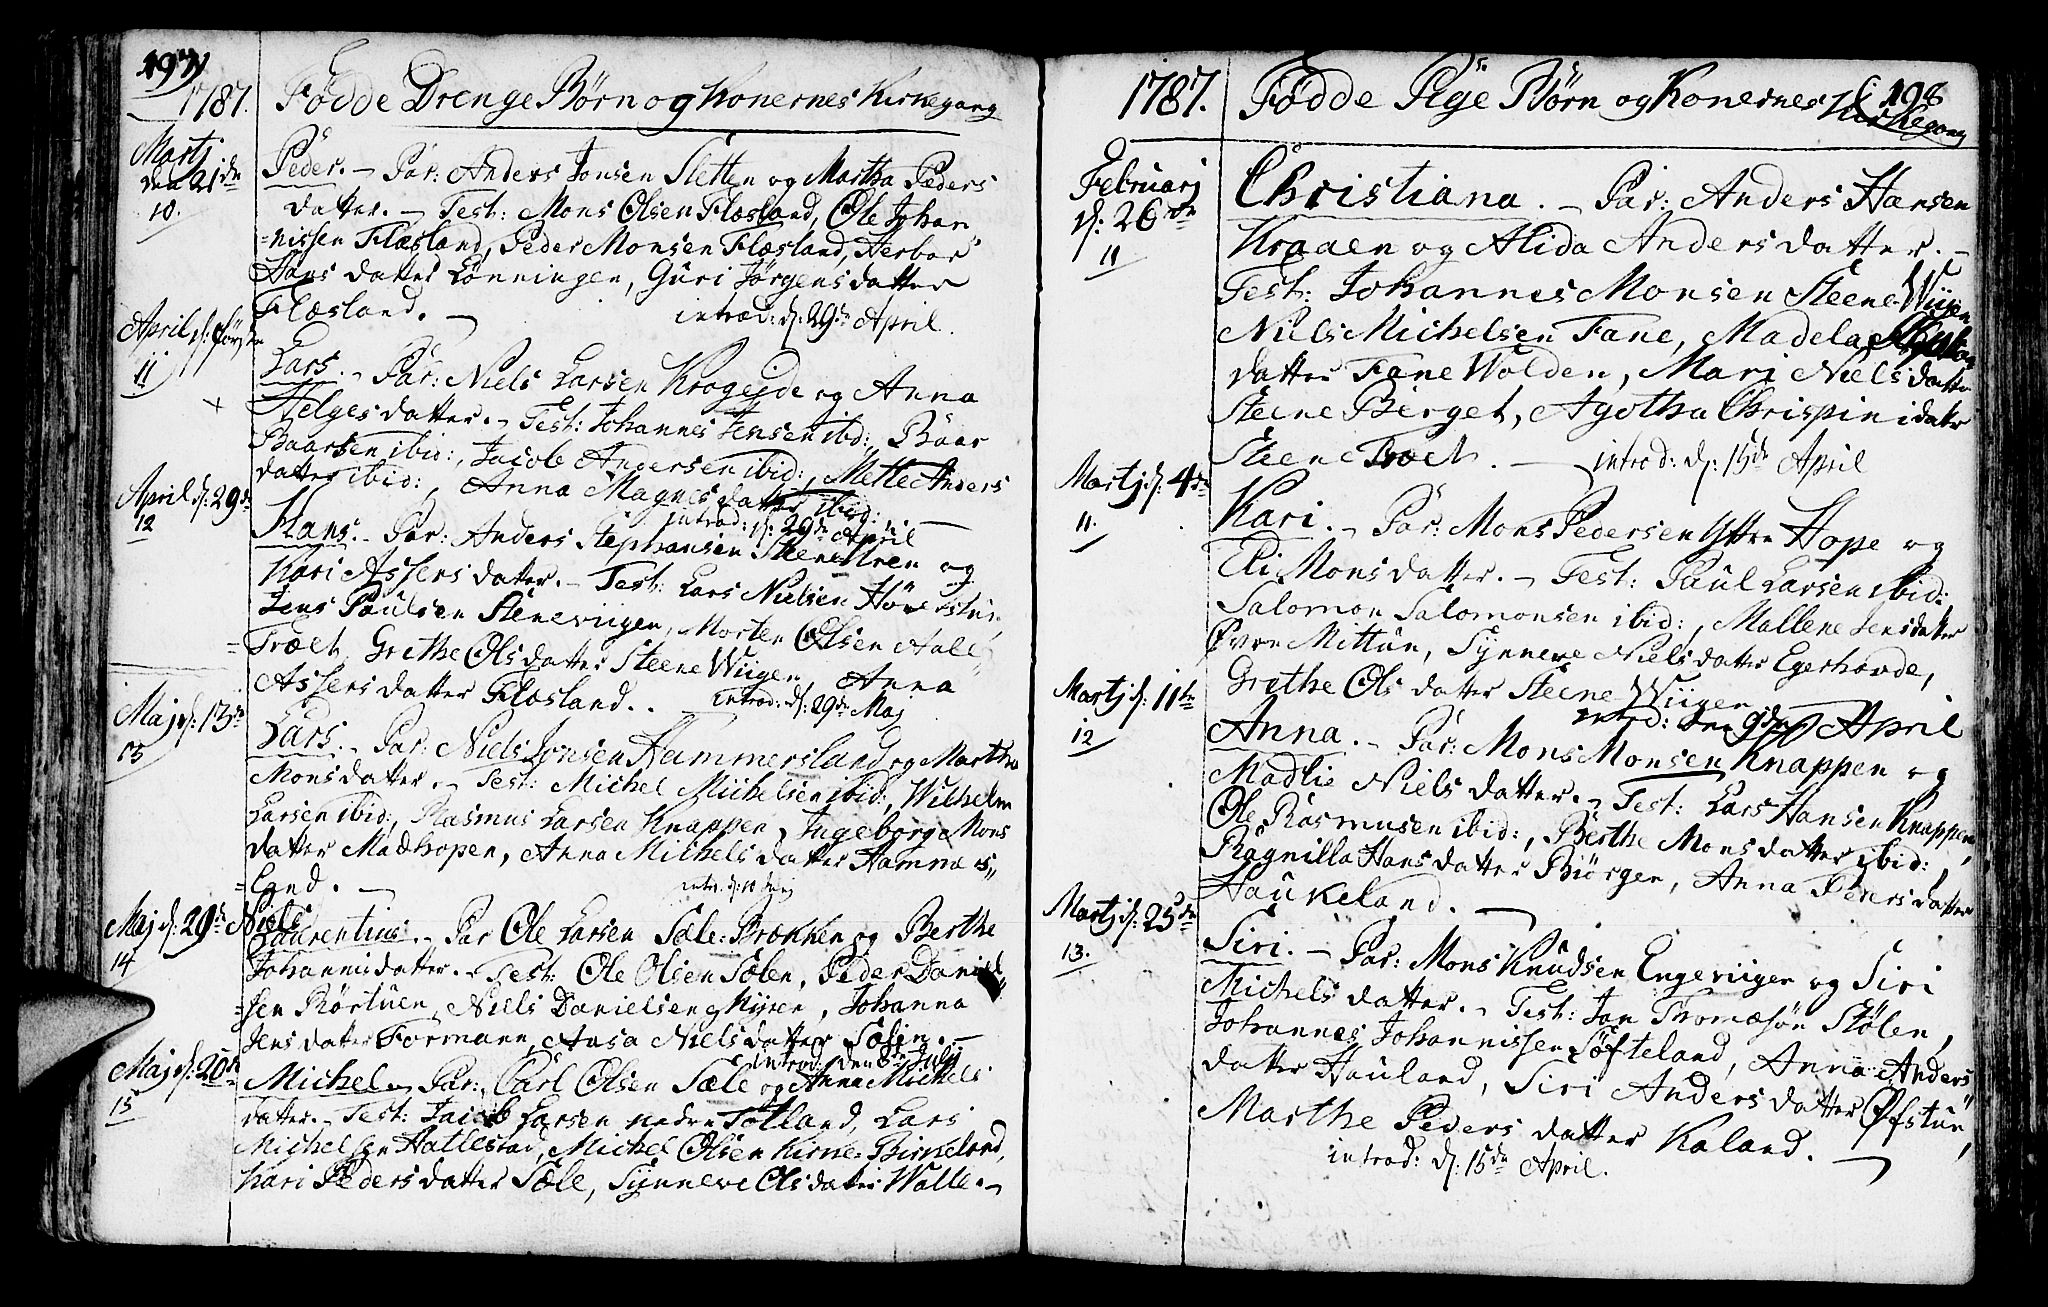 197
1787. Födde Drenge Börn og Konernes Kirkegang
Martj
den 21de
10.
Peder. - Par: Anders Jonsen Sletten og Martha Peders
datter. - Test: Mons Olsen Flæsland, Ole Johan
=nissen Flæsland, Peder Monsen Flæsland, Herbor
Hans datter Lønningen, Guri Jørgens datter
Flæsland. - introd: d: 29de April.
April d: första
11
Lars. - Par: Niels Larsen Krogeide og Anna
Helges datter. - Test: Johannes Jensen ibid:, Baar
Baarsen ibid:, Jacob Andersen ibid:, Mette Anders
datter ibid:, Anna Magnes datter ibid: -
introd: d: 29de April
April d: 29de
12
Hans. - Par: Anders Stephansen Steene Uren og
Kari Assers datter. - Test: Lars Nielsen
Jens Paulsen Stenevigen, Morten Olsen
=Træet, Grethe Ols datter Steene Wiigen, Anna
Assers datter Flæsland. - introd: d: 29de Maj
Maj d: 13de
13
Lars. - Par: Niels Jonsen Hammersland og Martha
Monsdatter. - Test: Michel Michelsen ibid:, Wilhelm
Larsen ibid:, Rasmus Larsen Knappen, Ingeborg Mons
datter Madhopen, Anna Michels datter Hammers,,
=Land. - intr. d: 10 Junj
Maj d: 29de
14
Niels
Laurentius. - Par Ole Larsen Sæle-Brækken og Berthe
Johannis datter. - Test: Ole Olsen Sælen, Peder Daniel,,
=sen Rörtuen, Niels Danielsen Myren, Johanna
Jens datter Formann, Aasa Niels datter Sælen. -
introd: den 8de Julj
Maj d: 20de
15
Michel - Par: Carl Olsen Sæle og Anna Michels
datter. - Test: Jacob Larsen nedre Totland, Lars
Michelsen Hatlestad, Michel Olsen Kirke-Birkeland,
Kari Peders datter Sæle, Synneve Ols datter Walle. -
198
1787. Födde Pige Börn og Konernes Kirkegang
Februarj
d: 26de
11
Christiana. - Par: Anders Hansen
Kraaen og Alida Anders datter. -
Test: Johannes Monsen Steene Wiigen
Niels Michelsen Fane, Madela
datter Fane Wolden, Mari Niels datter
Steene Berget, Agotha Chrispini datter
Steene Træet. - introd: d: 15de April
Martj d: 4de
11.
Kari. - Par: Mons Pedersen Yttre Hope og
Eli Mons datter. - Test: Paul Larsen ibid:
Salomon Salomonsen ibid:, Mallene Jens datter
Øvre Mittun, Synneve Niels datter Egerhovde,
Grethe Ols datter Steene Wiigen
introd: den 9de April
Martj d: 11te
12
Anna. - Par: Mons Monsen Knappen og
Madlie Niels datter. - Test: Lars Hansen Knappen,
Ole Rasmusen ibid:, Berthe Mons datter ibid:,
Ragnilla Hans datter Biørgen, Anna Peders datter
Haukeland. -
Martj d: 25de
13.
Siri. - Par: Mons Knudsen Engeviigen og Siri
Michels datter. - Test: Jon Thomæsön Stölen,
Johannes Johannissen Söfteland, Anna Anders
datter Hauland, Siri Anders datter Øfstun,
Marthe Peders datter Kaland. -
introd: d: 15de April.